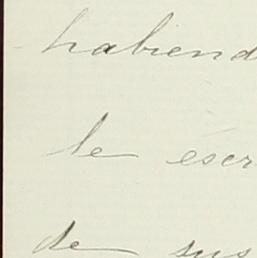 habiend
le escr
de sus